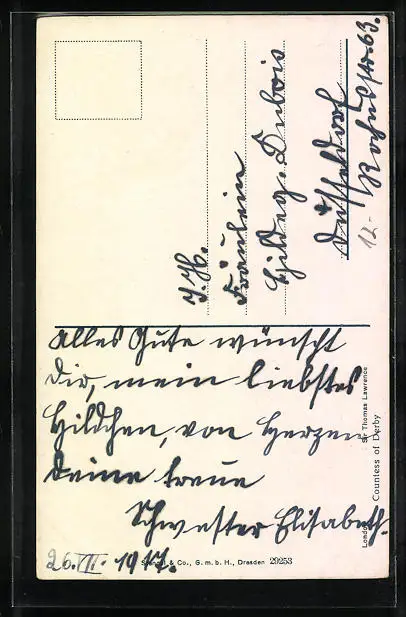 I. H.
Fräulein
Hildeg. Dubois
Düsseldorf
Rochusstr. 63.
12.-
Alles Gute wünscht
Dir, mein liebstes
Hildchen, von Herzen
Deine treue
Schwester Elisabeth.
26. VII. 1917.
Stengel & Co., G. m. b. H., Dresden 29253
London Sir Thomas Lawrence
Countess of Derby